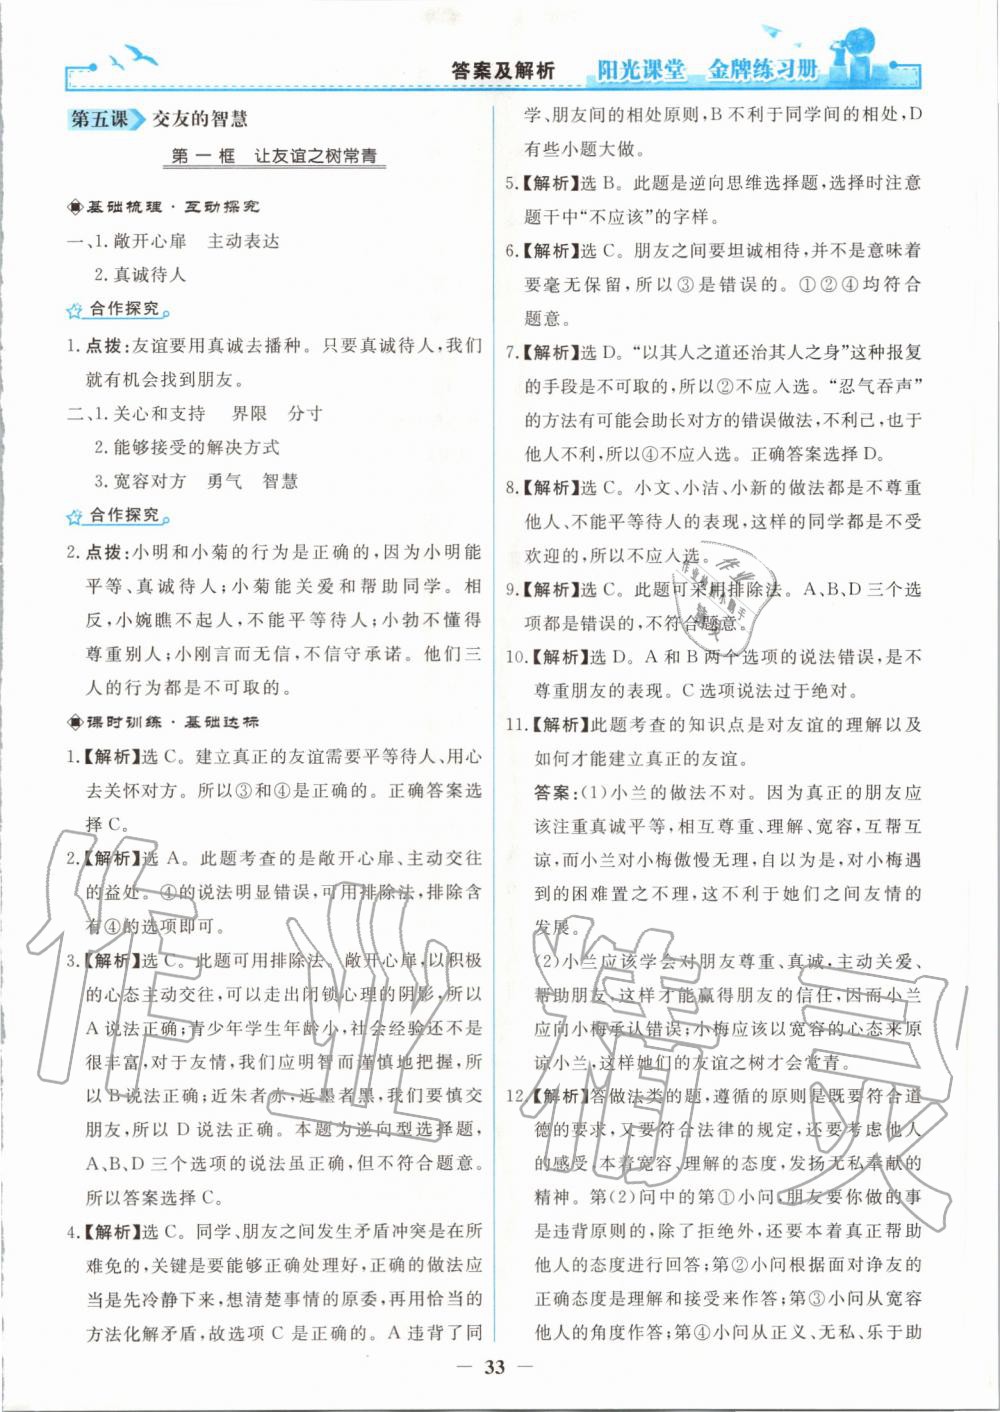 答案及解析
阳光课堂 金牌练习册
第五课 交友的智慧
第一框 让友谊之树常青
基础梳理·互动探究
一、1.敞开心扉 主动表达
2.真诚待人
合作探究
1.点拨:友谊要用真诚去播种。只要真诚待人,我们
就有机会找到朋友。
二、1.关心和支持 界限 分寸
2.能够接受的解决方式
3.宽容对方 勇气 智慧
合作探究
2.点拨:小明和小菊的行为是正确的,因为小明能
平等、真诚待人;小菊能关爱和帮助同学。相
反,小婉瞧不起人,不能平等待人;小勃不懂得
尊重别人;小刚言而无信,不信守承诺。他们三
人的行为都是不可取的。
课时训练·基础达标
1.【解析】选 C。建立真正的友谊需要平等待人,用心
去关怀对方。所以③和④是正确的。正确答案选
择 C。
2.【解析】选 A。此题考查的是敞开心扉、主动交往
的益处。④的说法明显错误,可用排除法,排除含
有④的选项即可。
3.【解析】选 C。此题可用排除法。敞开心扉,以积极
的心态主动交往,可以走出闭锁心理的阴影,所以
A 说法正确;青少年学生年龄小,社会经验还不是
很丰富,对于友情,我们应明智而谨慎地把握,所
以 B 说法正确;近朱者赤,近墨者黑,我们要慎交
朋友,所以 D 说法正确。本题为逆向型选择题,
A、B、D 三个选项的说法虽正确,但不符合题意。
所以答案选择 C。
4.【解析】选 C。同学、朋友之间发生矛盾冲突是在所
难免的,关键是要能够正确处理好,正确的做法应
当是先冷静下来,想清楚事情的原委,再用恰当的
方法化解矛盾,故选项 C 是正确的。A 违背了同
学、朋友间的相处原则,B 不利于同学间的相处,D
有些小题大做。
5.【解析】选 B。此题是逆向思维选择题,选择时注意
题干中“不应该”的字样。
6.【解析】选 C。朋友之间要坦诚相待,并不是意味着
要毫无保留,所以③是错误的。①②④均符合
题意。
7.【解析】选 D。“以其人之道还治其人之身”这种报复
的手段是不可取的,所以②不应入选。“忍气吞声”
的方法有可能会助长对方的错误做法,不利己,也于
他人不利,所以④不应入选。正确答案选择 D。
8.【解析】选 C。小文、小洁、小新的做法都是不尊重
他人、不能平等待人的表现,这样的同学都是不受
欢迎的,所以不应入选。
9.【解析】选 C。此题可采用排除法。A、B、D 三个选
项都是错误的,不符合题意。
10.【解析】选 D。A 和 B 两个选项的说法错误,是不
尊重朋友的表现。C 选项说法过于绝对。
11.【解析】此题考查的知识点是对友谊的理解以及
如何才能建立真正的友谊。
答案:(1)小兰的做法不对。因为真正的朋友应
该注重真诚平等,相互尊重、理解、宽容,互帮互
谅,而小兰与小梅傲慢无理,自以为是,对小梅遇
到的困难置之不理,这不利于她们之间友情的
发展。
(2)小兰应该学会对朋友尊重、真诚,主动关爱、
帮助朋友,这样才能赢得朋友的信任,因而小兰
应向小梅承认错误;小梅应该以宽容的心态来原
谅小兰,这样她们的友谊之树才会常青。
12.【解析】答做法类的题,遵循的原则是既要符合道
德的要求,又要符合法律的规定,还要考虑他人
的感受,本着宽容、理解的态度,发扬无私奉献的
精神。第(2)问中的第①小问,朋友要你做的事
是违背原则的,除了拒绝外,还要本着真正帮助
他人的态度进行回答;第②小问根据面对诤友的
正确态度是理解和接受来作答;第③小问从宽容
他人的角度作答;第④小问从正义、无私、乐于助
33
作业精灵